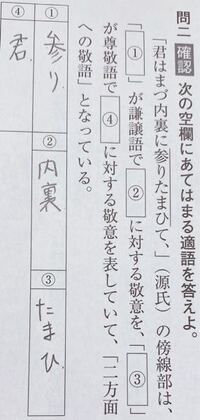 問二 確認 次の空欄にあてはまる適語を答えよ。
「君はまづ内裏に参りたまひて、」(源氏)の傍線部は
「①」が謙譲語で②に対する敬意を、「③」
が尊敬語で④に対する敬意を表していて、「二方面
への敬語」となっている。
① 参り ② 内裏 ③ たまひ
④ 君